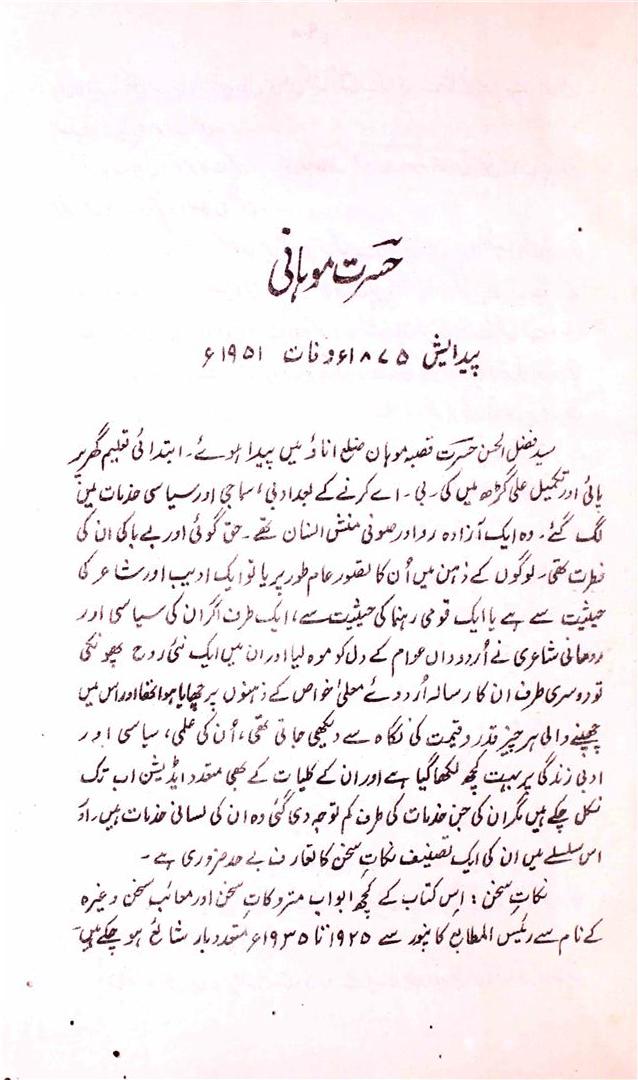 حسرت موہانی
پیدایش ۱۸۷۵ء وفات ۱۹۵۱ء
سید فضل الحسن حسرت قصبہ موہان ضلع اناؤ میں پیدا ہوئے۔ ابتدائی تعلیم گھر پر
پائی اور تکمیل علی گڑھ میں کی۔ بی۔ اے کرنے کے بعد ادبی، سماجی اور سیاسی خدمات میں
لگ گئے۔ وہ ایک آزادہ رو اور صوفی منش انسان تھے۔ حق گوئی اور بے باکی ان کی
فطرت تھی۔ لوگوں کے ذہن میں اُن کا تصور عام طور پر یا تو ایک ادیب اور شاعر کی
حیثیت سے ہے یا ایک قومی رہنما کی حیثیت سے، ایک طرف اگر ان کی سیاسی اور
رومانی شاعری نے اُردو داں عوام کے دل کو موہ لیا اور ان میں ایک نئی روح پھونکی
تو دوسری طرف ان کا رسالہ اُردوئے معلیٰ خواص کے ذہنوں پر چھایا ہوا تھا اور اس میں
چھپنے والی ہر چیز قدر و قیمت کی نگاہ سے دیکھی جاتی تھی، اُن کی علمی، سیاسی اور
ادبی زندگی پر بہت کچھ لکھا گیا ہے اور ان کے کلیات کے بھی متعدد ایڈیشن اب تک
نکل چکے ہیں مگر ان کی جن خدمات کی طرف کم توجہ دی گئی وہ ان کی لسانی خدمات ہیں۔ اور
اس سلسلے میں ان کی ایک تصنیف نکاتِ سخن کا تعارف بے حد ضروری ہے۔
نکاتِ سخن: اِس کتاب کے کچھ ابواب متروکاتِ سخن اور معائبِ سخن وغیرہ
کے نام سے رئیس المطابع کانپور سے ۱۹۲۵ تا ۱۹۳۵ء متعدد بار شائع ہو چکے ہیں۔